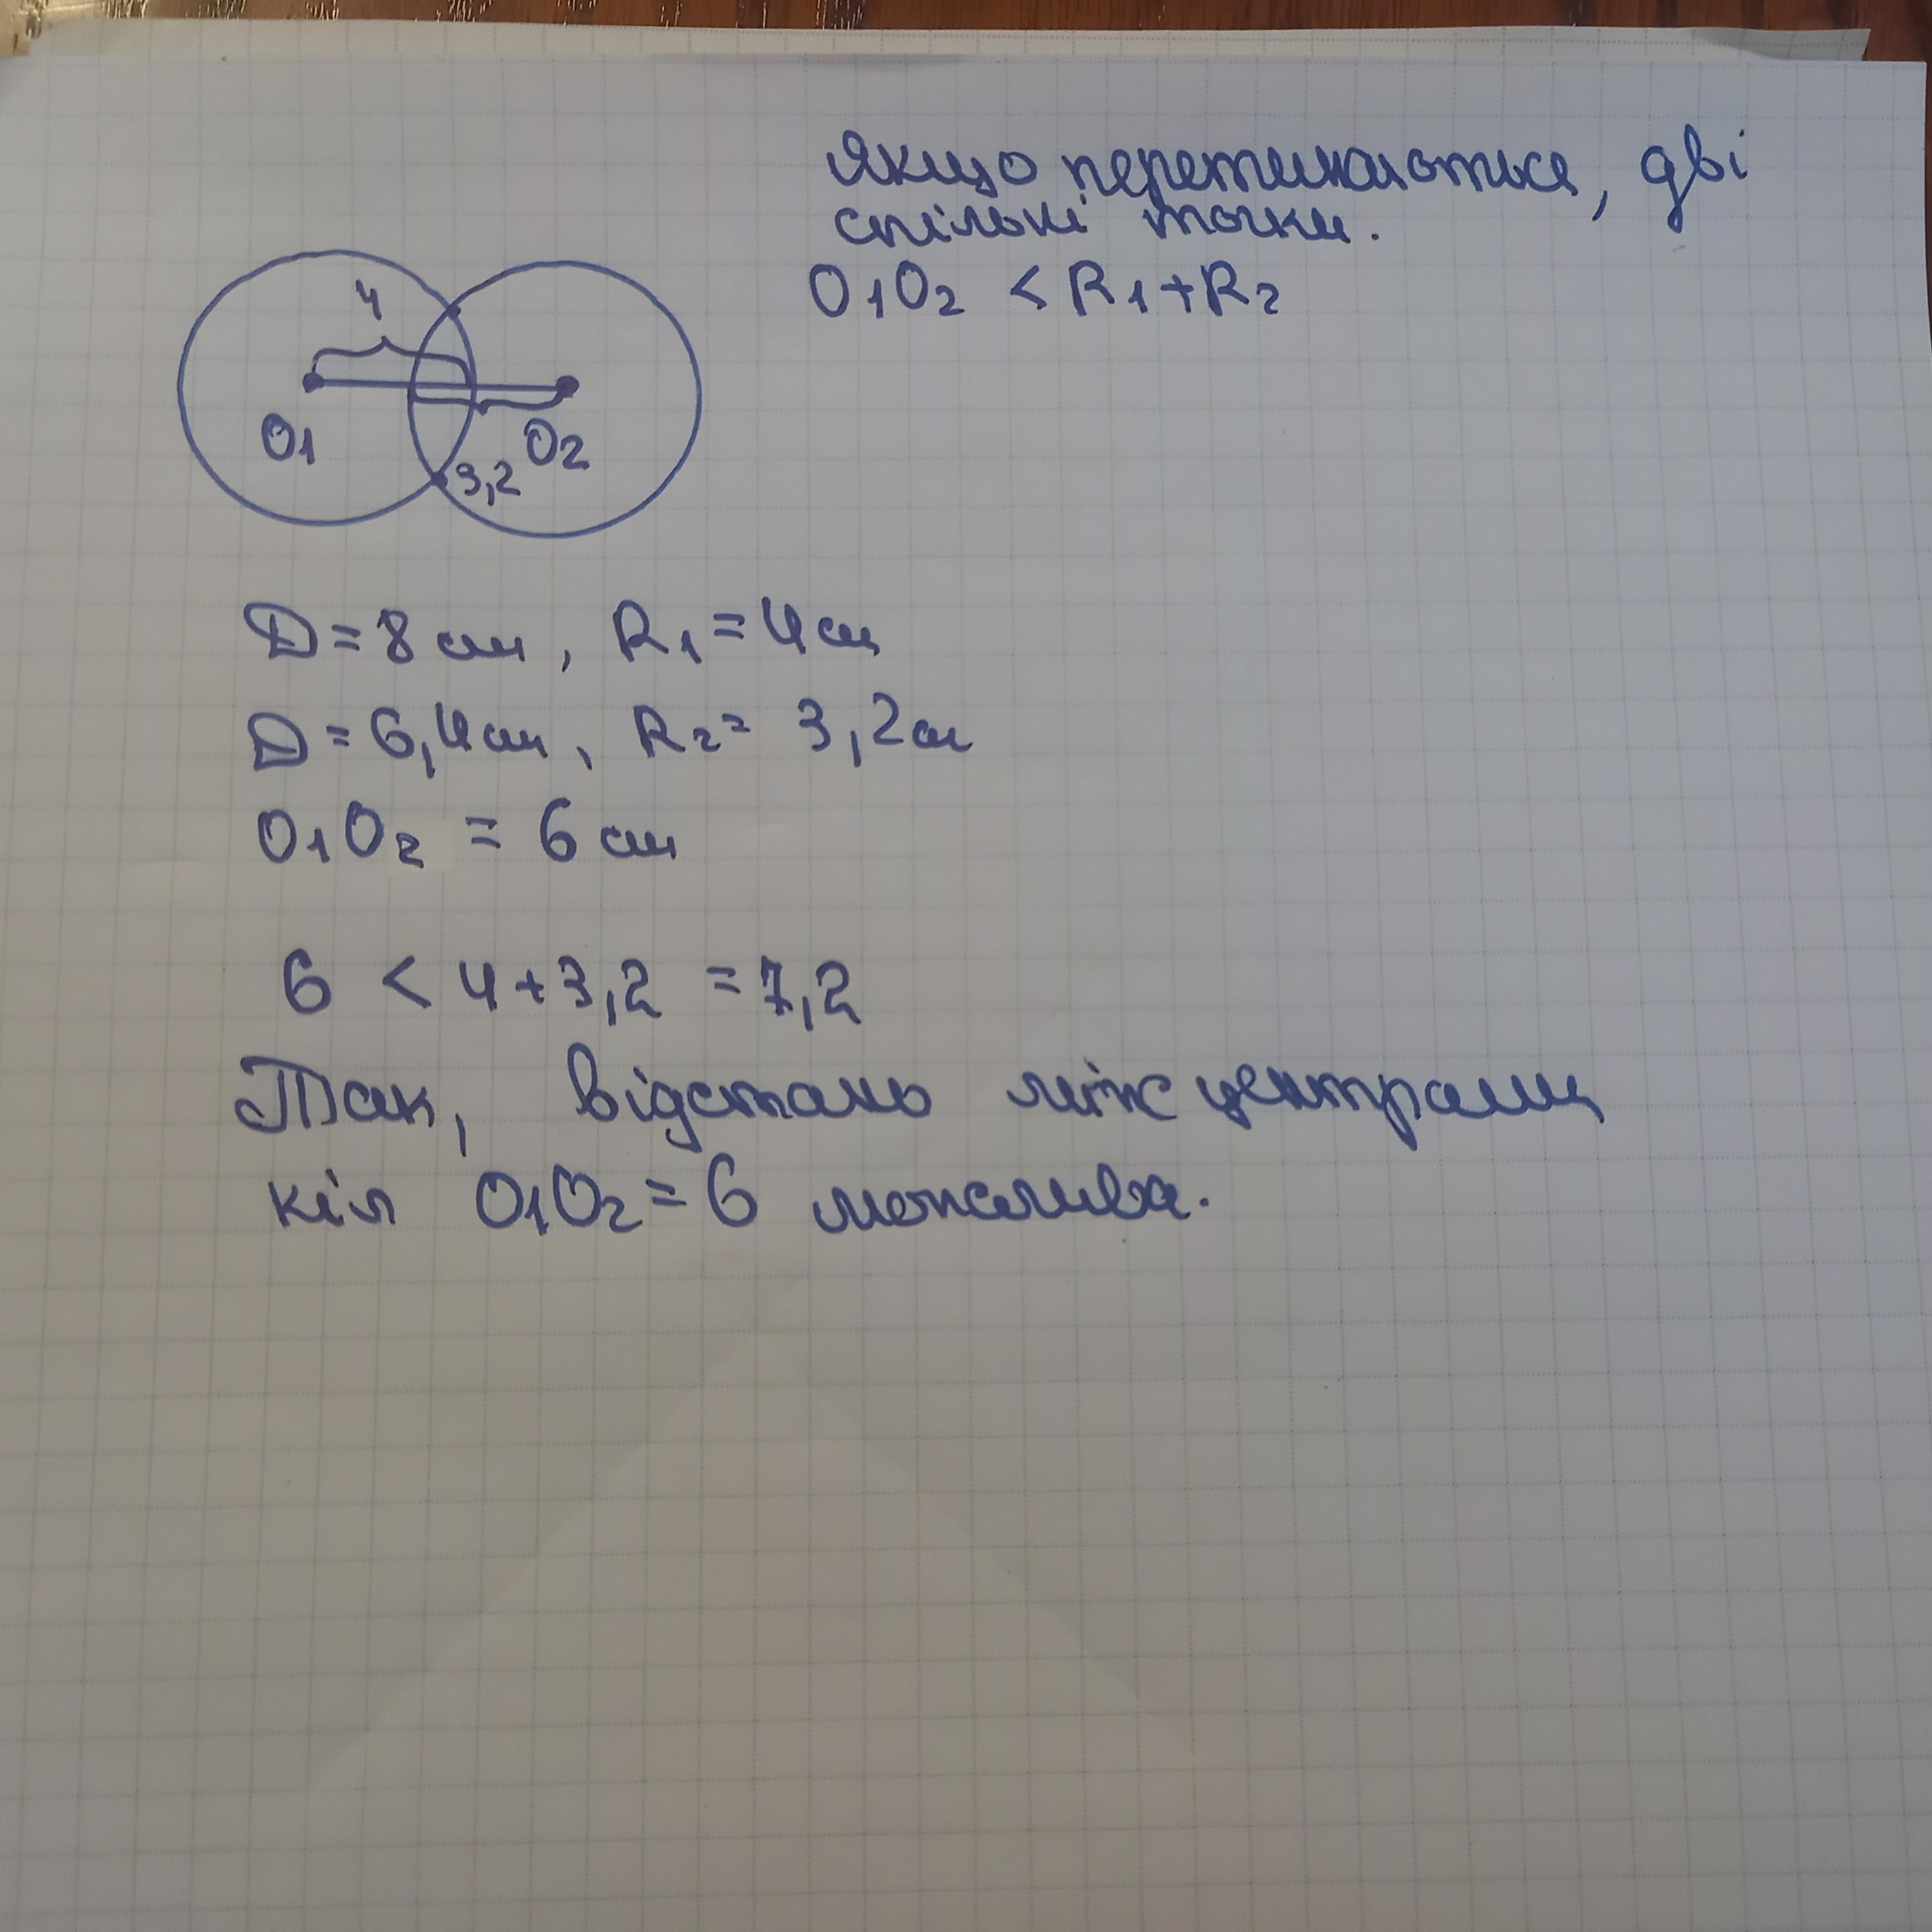 Якщо перетинаються, дві
спільні точки.
O1O2 < R1+R2
4
O1
O2
3,2
D = 8 см, R1 = 4 см
D = 6,4 см, R2 = 3,2 см
O1O2 = 6 см
6 < 4+3,2 = 7,2
Так, відстань між центрами
кіл O1O2 = 6 можлива.